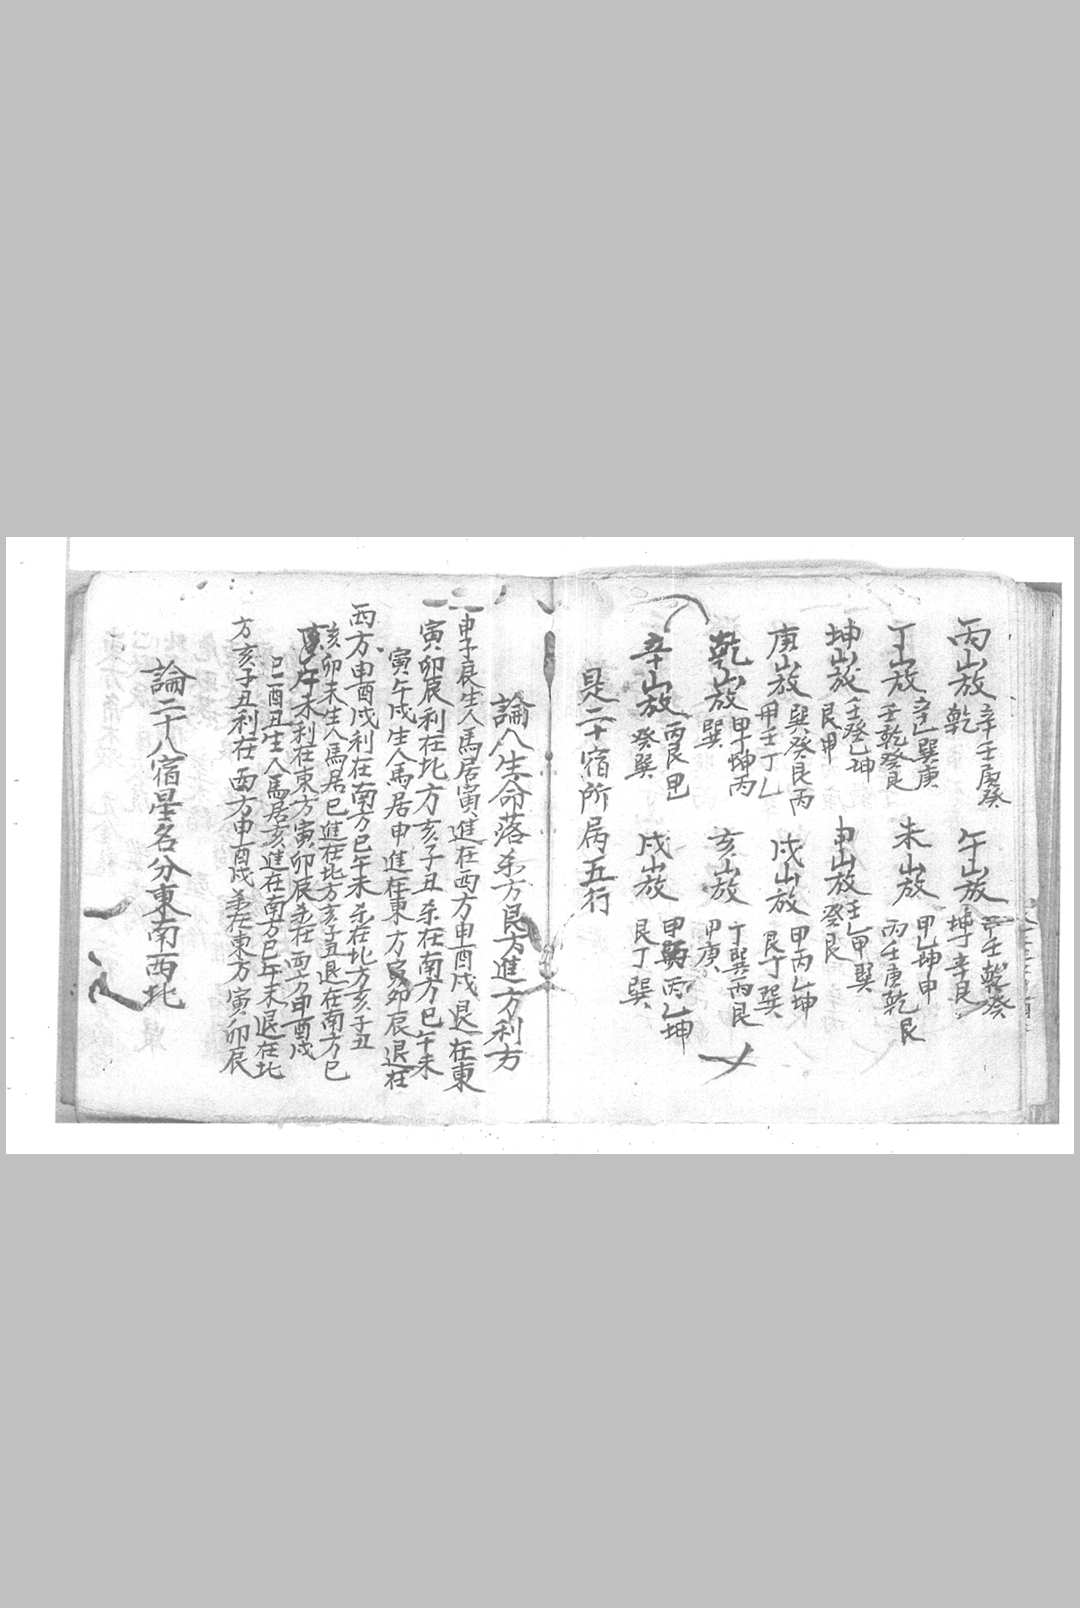 丙山放 辛壬庚癸 乾 午山放 甲壬乾癸 坤丁辛艮
丁山放 辛乙巽庚 壬乾癸艮 未山放 甲乙坤申 丙壬庚乾艮
坤山放 壬癸乙坤 艮甲 申山放 壬乙甲巽 癸艮
庚山放 巽癸艮丙 甲壬丁乙 戌山放 甲丙乙坤 艮丁巽
乾山放 甲坤丙 巽 亥山放 丁巽丙艮 甲庚
辛山放 丙艮甲 癸巽 戌山放 甲 丙乙坤 艮丁巽
是二十宿所局五行
論人生命落杀方艮方進方利方
申子辰生人馬居寅進在西方申酉戌退在東
寅卯辰利在北方亥子丑杀在南方巳午未
寅午戌生人馬居申進在東方寅卯辰退在
西方申酉戌利在南方巳午未杀在北方亥子丑
亥卯未生人馬居巳進在北方亥子丑退在南方巳
午未利在東方寅卯辰杀在西方申酉戌
巳酉丑生人馬居亥進在南方巳午未退在北
方亥子丑利在西方申酉戌杀在東方寅卯辰
論二十八宿星名分東南西北